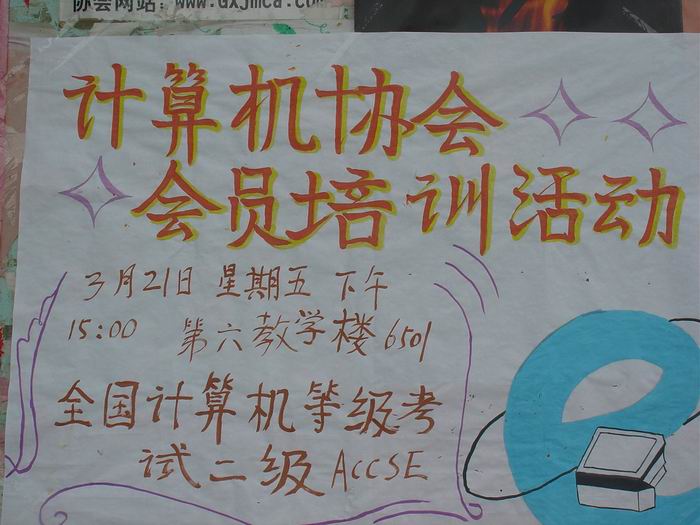 协会网站：www.Gxjmca.com
计算机协会
会员培训活动
3月21日 星期五 下午
15:00 第六教学楼 6501
全国计算机等级考
试二级 ACCSE